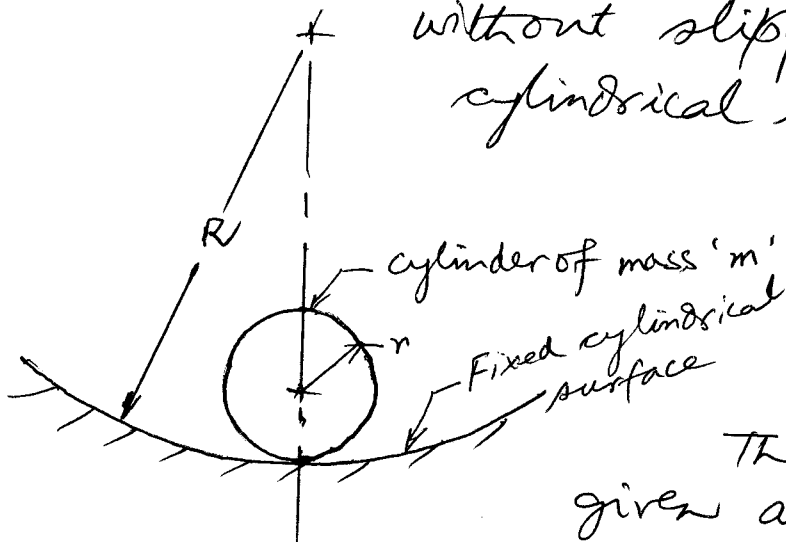 without slip
cylindrical
R
cylinder of mass 'm'
r
Fixed cylindrical
surface
Th
given a